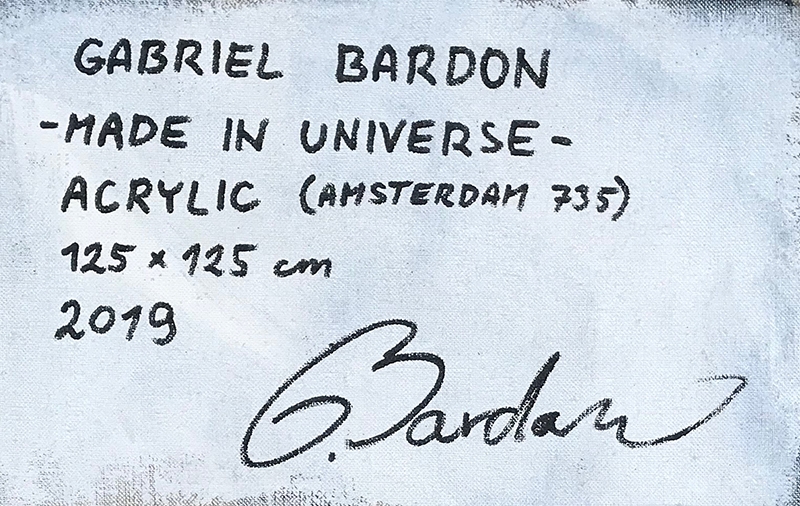 GABRIEL BARDON
-MADE IN UNIVERSE-
ACRYLIC (AMSTERDAM 735)
125 × 125 cm
2019
G. Bardon